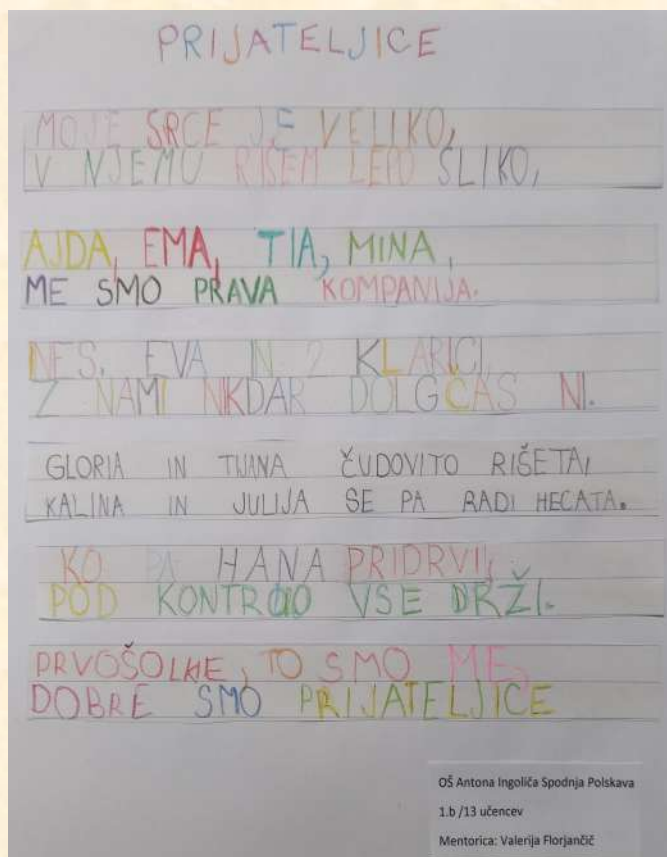 PRIJATELJICE
MOJE SRCE JE VELIKO,
V NJEMU RIŠEM LEPO SLIKO,
AJDA, EMA, TIA, MINA,
ME SMO PRAVA KOMPANIJA.
NES, EVA IN 2 KLARICI,
Z NAMI NIKDAR DOLGČAS NI.
GLORIA IN TIJANA ČUDOVITO RIŠETA,
KALINA IN JULIJA SE PA RADI HECATA.
KO PA HANA PRIDRVI,
POD KONTROLO VSE DRŽI.
PRVOŠOLKE, TO SMO ME,
DOBRE SMO PRIJATELJICE
OŠ Antona Ingoliča Spodnja Polskava
1.b /13 učencev
Mentorica: Valerija Florjančič